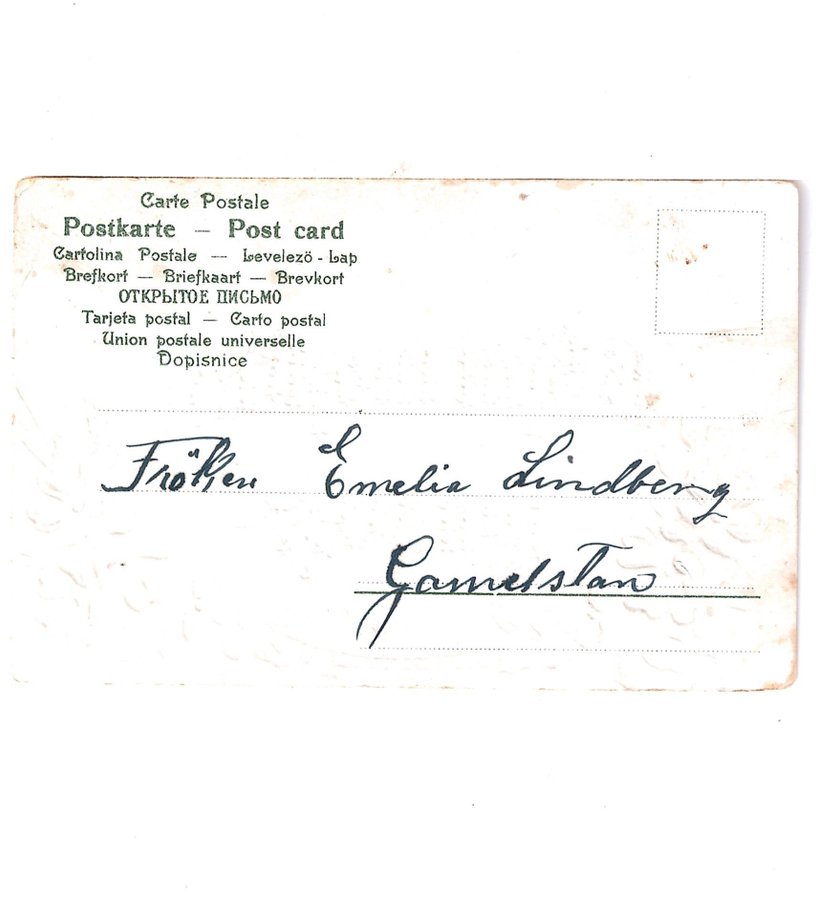 Carte Postale
Postkarte — Post card
Cartolina Postale — Levelezö - Lap
Brefkort — Briefkaart — Brevkort
ОТКРЫТОЕ ПИСЬМО
Tarjeta postal — Carto postal
Union postale universelle
Dopisnice
Fröken Emelia Lindberg
Gamelstan